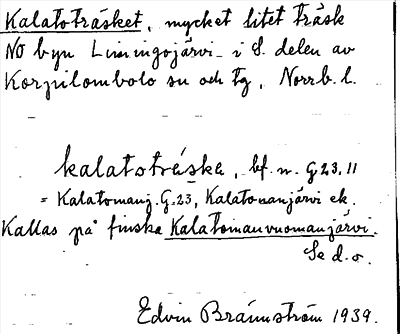 Kalatoträsket, mycket litet träsk
NO byn Liviningojärvi i S. delen av
Korpilombolo sn och tg, Norrb. l.
kalatoträske, bf. n. G.23,11
= Kalatomanj. G.23, Kalatomanjärvi ek.
Kallas på finska Kalatomanvuomanjärvi.
Se d.o.
Edvin Brännström 1939.